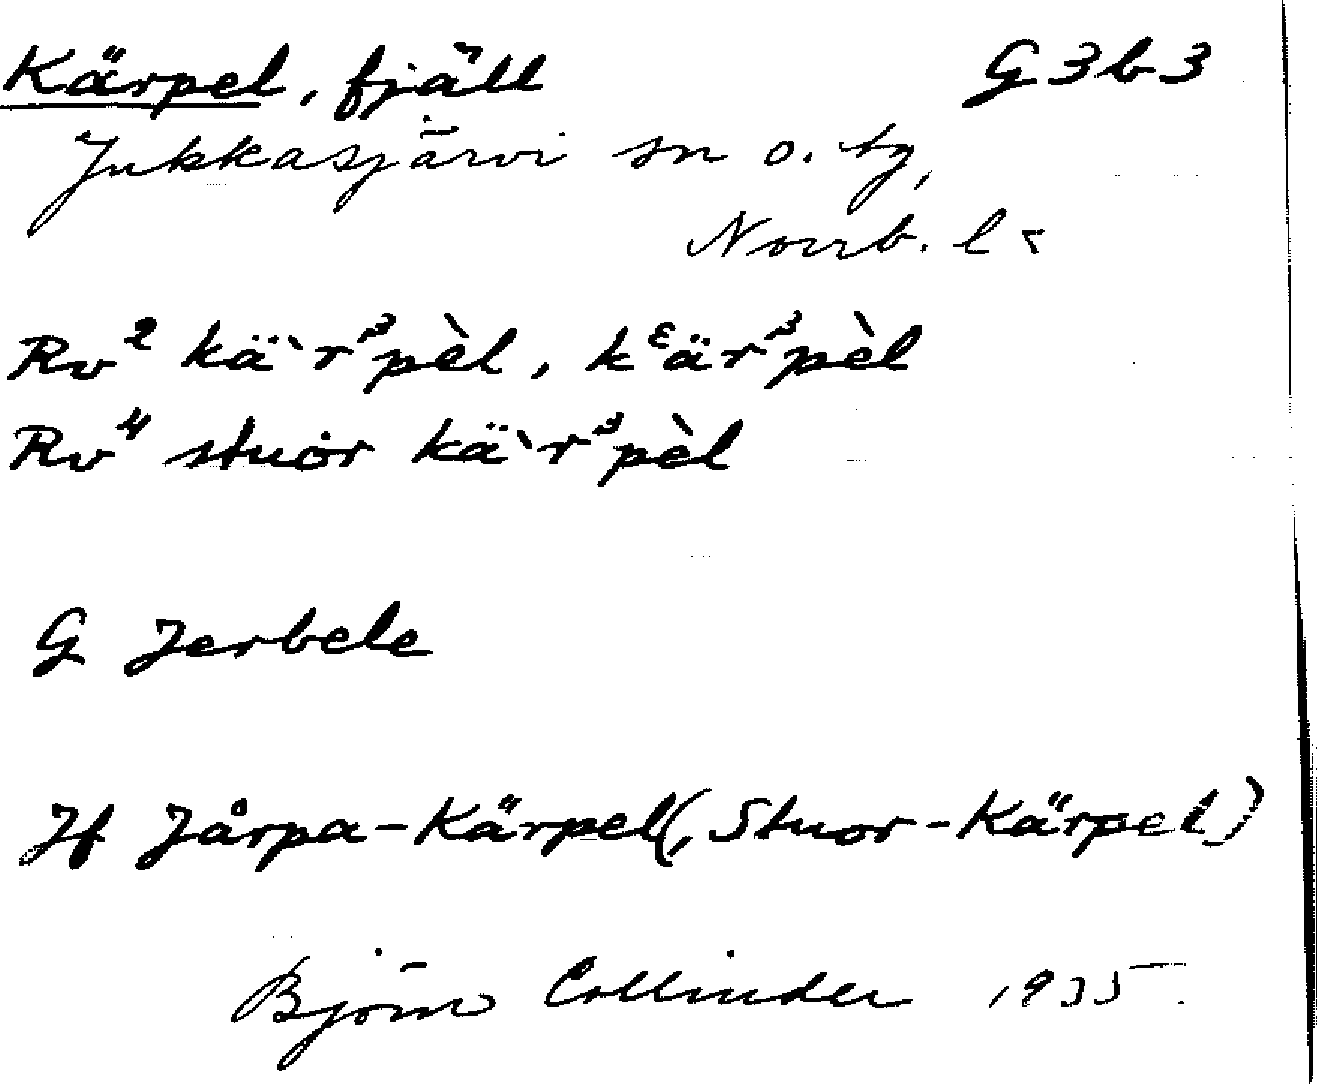 Kärpel, fjäll G3b3
Jukkasjärvi sn o. tg,
Norrb. l.
Rv² kä`rᵌpèl, kᵋärᵌpèl
Rv⁴ stuȯr kä`rᵌpèl
G Jerbele
Jf Jårpa-Kärpel(, Stuor-Kärpel)
Björn Collinder 1935